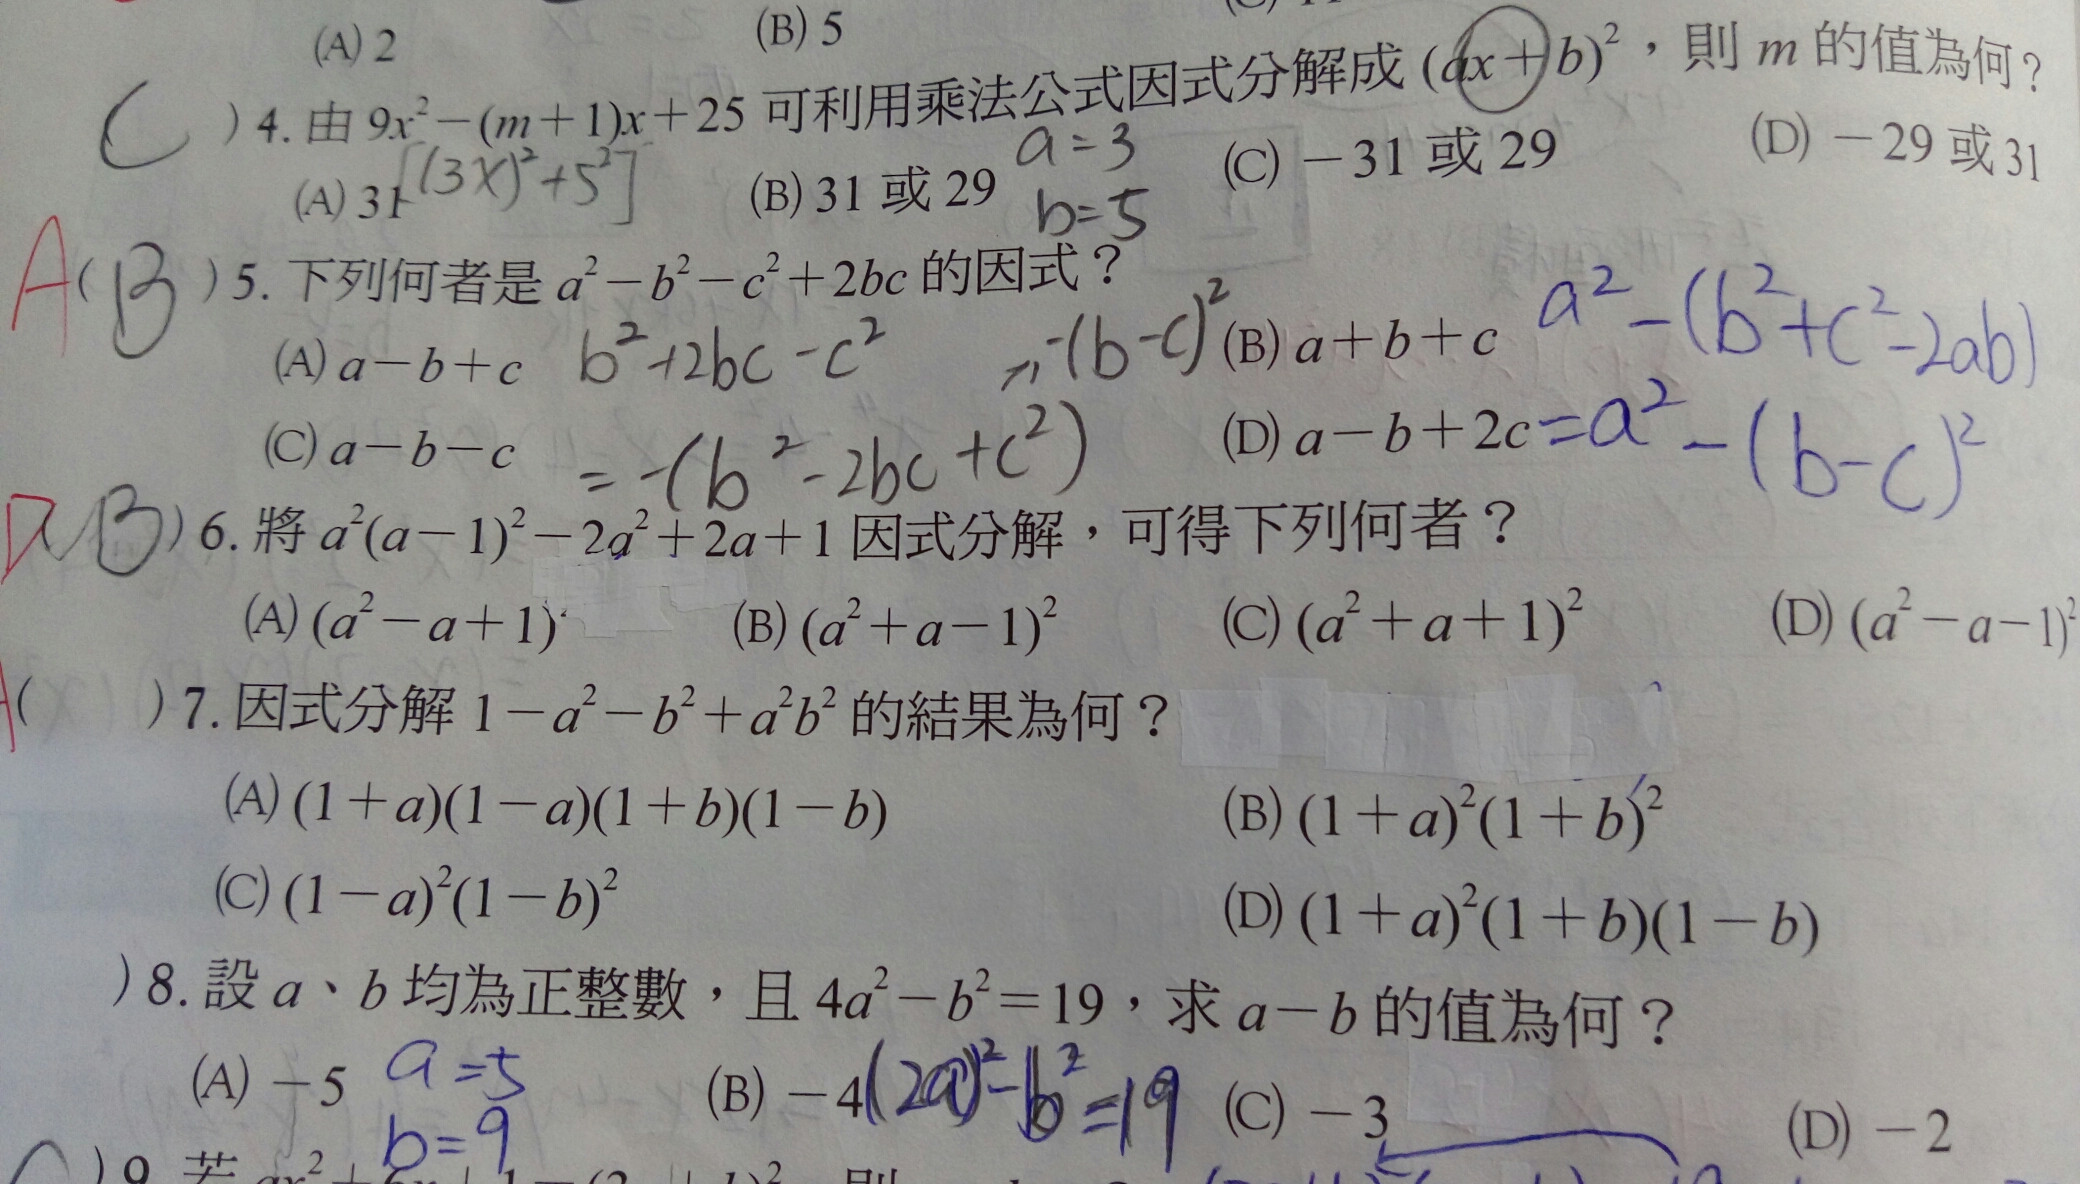 (A) 2 (B) 5
C ) 4. 由 9x²－(m＋1)x＋25 可利用乘法公式因式分解成 (ax＋b)²，則 m 的值為何？
[(3x)²+5²] a=3 b=5
(A) 31 (B) 31 或 29 (C) －31 或 29 (D) －29 或 31
A ( B ) 5. 下列何者是 a²－b²－c²＋2bc 的因式？
(A) a－b＋c b²+2bc-c² -(b-c)² (B) a＋b＋c a²-(b²+c²-2ab)
(C) a－b－c =-(b²-2bc+c²) (D) a－b＋2c =a²-(b-c)²
D ( B ) 6. 將 a²(a－1)²－2a²＋2a＋1 因式分解，可得下列何者？
(A) (a²－a＋1) (B) (a²＋a－1)² (C) (a²＋a＋1)² (D) (a²－a－1)²
( ) 7. 因式分解 1－a²－b²＋a²b² 的結果為何？
(A) (1＋a)(1－a)(1＋b)(1－b) (B) (1＋a)²(1＋b)²
(C) (1－a)²(1－b)² (D) (1＋a)²(1＋b)(1－b)
) 8. 設 a、b 均為正整數，且 4a²－b²＝19，求 a－b 的值為何？
(A) －5 a=5 b=9 (B) －4 (2a)²-b²=19 (C) －3 (D) －2
) 9. 若